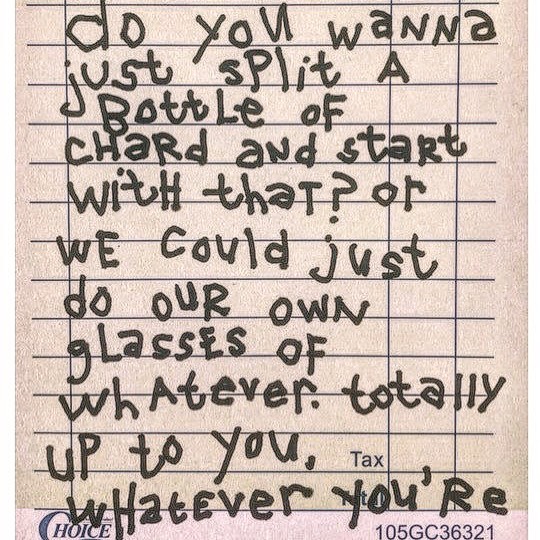 do you wanna
just split A
Bottle of
CHaRd and start
witH thaT? or
wE Could just
do OUR OWN
gLassEs of
whAtever. totally
UP to YOU,
Tax
wHatEver you'Re
CHOICE
105GC36321